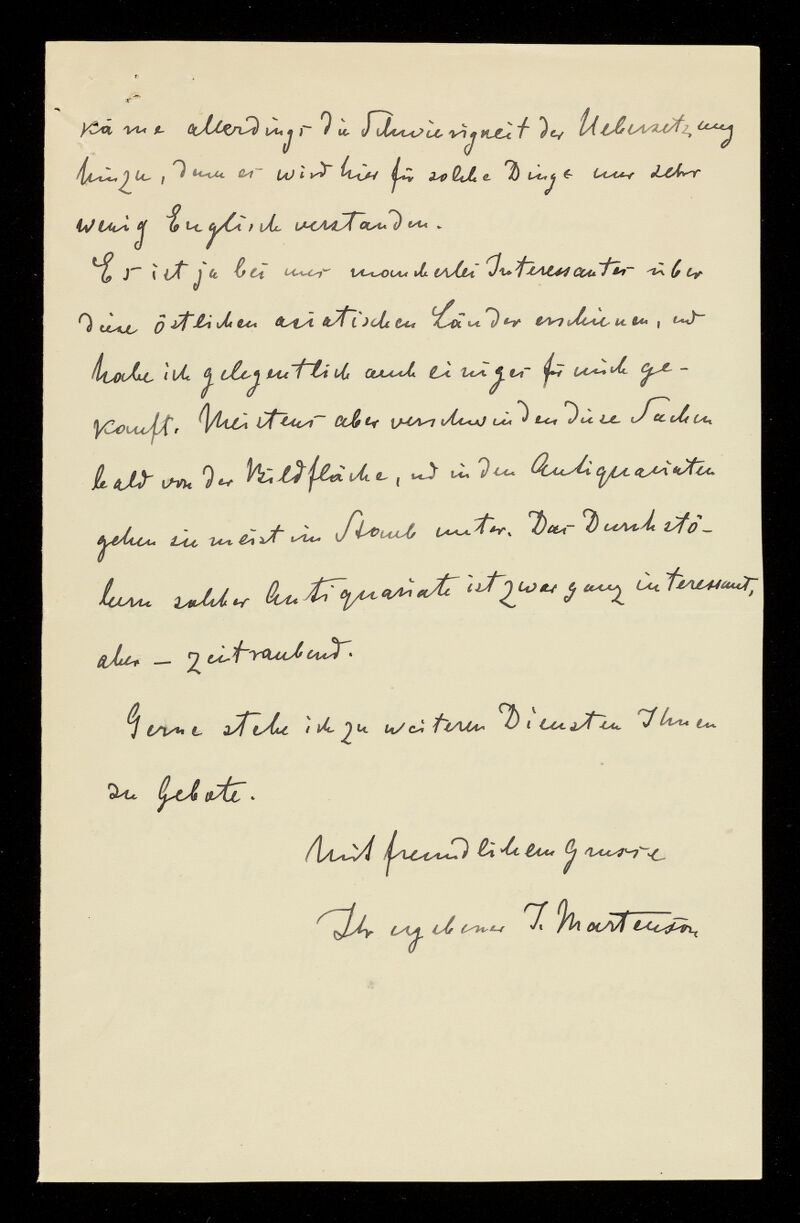 käme allerdings die Schwierigkeit der Uebersetzung
hinzu, denn es wird hier für solche Dinge nur sehr
wenig Englisch verstanden.
Es ist ja bei uns mancherlei Interessantes über
diese östlichen asiatischen Länder erschienen, und
habe ich gelegentlich auch einiges für mich ge-
kauft. Meistens aber verschwinden diese Sachen
bald von der Bildfläche, und in den Antiquariaten
gehen sie meist im Staub unter. Das Durchstö-
bern solcher Antiquariate ist zwar ganz interessant,
aber – zeitraubend.
Gerne stehe ich zu weiteren Diensten Ihnen
zu Gebote.
Mit freundlichem Grusse
Ihr ergebener J. Martenson